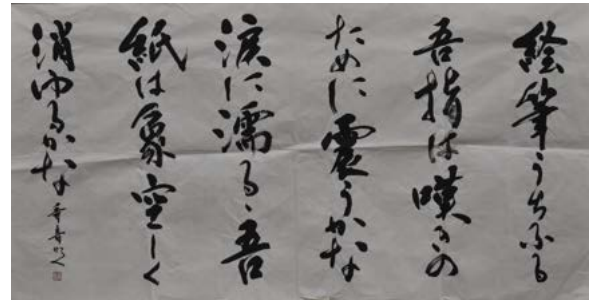 絵筆うちふる
吾指は嘆きの
ために震うかな
涙に濡るゝ吾
紙は象空しく
消ゆるかな